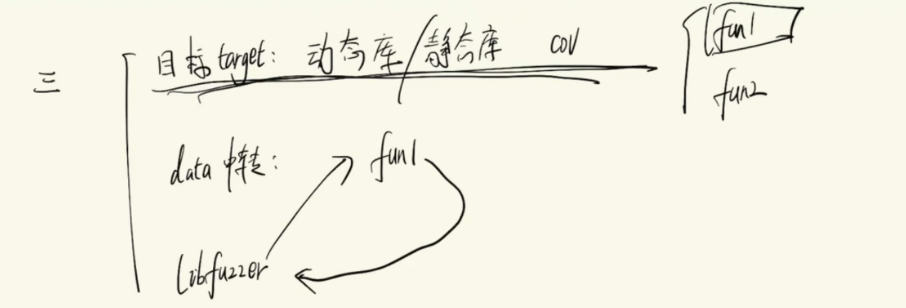 三
目标 target: 动态库/静态库 cov
fun1
fun2
data 中转: fun1
Libfuzzer